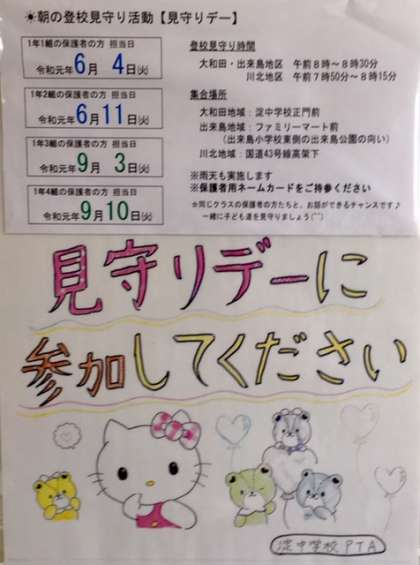 ☀朝の登校見守り活動【見守りデー】
1年1組の保護者の方 担当日
令和元年6月 4日㈫
1年2組の保護者の方 担当日
令和元年6月11日㈫
1年3組の保護者の方 担当日
令和元年9月 3日㈫
1年4組の保護者の方 担当日
令和元年9月10日㈫
登校見守り時間
大和田・出来島地区 午前8時～8時30分
川北地区 午前7時50分～8時15分
集合場所
大和田地域：淀中学校正門前
出来島地域：ファミリーマート前
(出来島小学校東側の出来島公園の向い)
川北地域：国道43号線高架下
※雨天も実施します
※保護者用ネームカードをご持参ください
☆同じクラスの保護者の方たちと、お話ができるチャンスです♪
一緒に子ども達を見守りましょう(^^)
見守りデーに
参加してください
淀中学校PTA